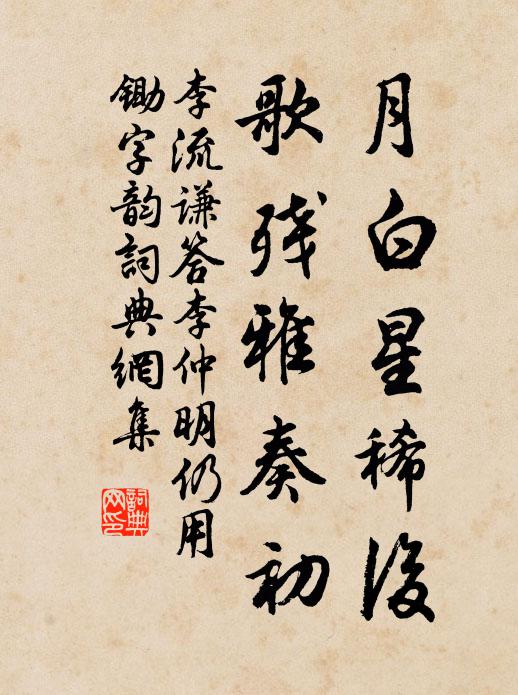 月白星稀後
歌残雅奏初
李流谦答李仲明仍用
锄字韵詞典網集
詞典
网印